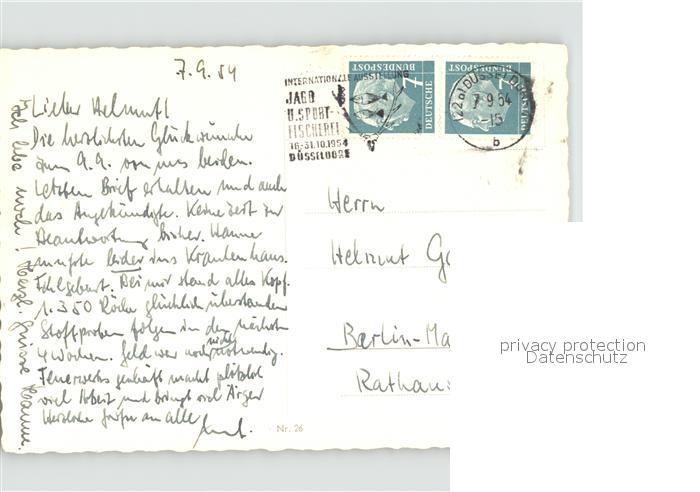 7.9.54
Lieber Helmut!
Die herzlichsten Glückwünsche
zum 9.9. von uns beiden.
Letzten Brief erhalten und auch
das Angekündigte. Keine Zeit zur
Beantwortung bisher. Hanne
musste leider ins Krankenhaus.
Fehlgeburt. Bei mir stand alles Kopf.
1.350 Röcke glücklich überstanden
Stoffproben folgen in den nächsten
4 Wochen. Geld war noch nicht notwendig.
Feuerwerksgeschäft macht plötzlich
viel Arbeit und bringt viel Ärger
Herzliche Grüße an alle
Ich lebe noch! Herzl. Grüsse Hanne.
INTERNATIONALE AUSSTELLUNG
JAGD
U. SPORT-
FISCHEREI
16-31.10.1954
DÜSSELDORF
7
DEUTSCHE
BUNDESPOST
7
DEUTSCHE
BUNDESPOST
(22a) DÜSSELDORF
7.9.54
-15
b
Herrn
Helmut
Berlin-Ma
Rathaus
Nr. 26
privacy protection
Datenschutz